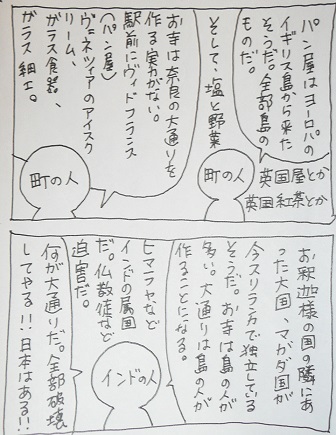 パン屋はヨーロパの
イギリス島から来た
そうだ。全部島の
ものだ。
そして、塩と野菜
町の人
英国屋とか
英国紅茶とか
お寺は奈良の大通りを
作る実力がない。
駅前にヴィドフランス
(パン屋)
ヴェネツィアのアイスク
リーム、
ガラス食器、
ガラス細工。
町の人
お釈迦様の国の隣にあ
った大国、マガダ国が
今スリランカで独立している
そうだ。お寺は島の人が
多い。大通りは島の人が
作ることになる。
ヒマラヤなど
インドの属国
だ。仏教徒など
迫害だ。
何が大通りだ。全部破壊
してやる!!日本はある!!
インドの人